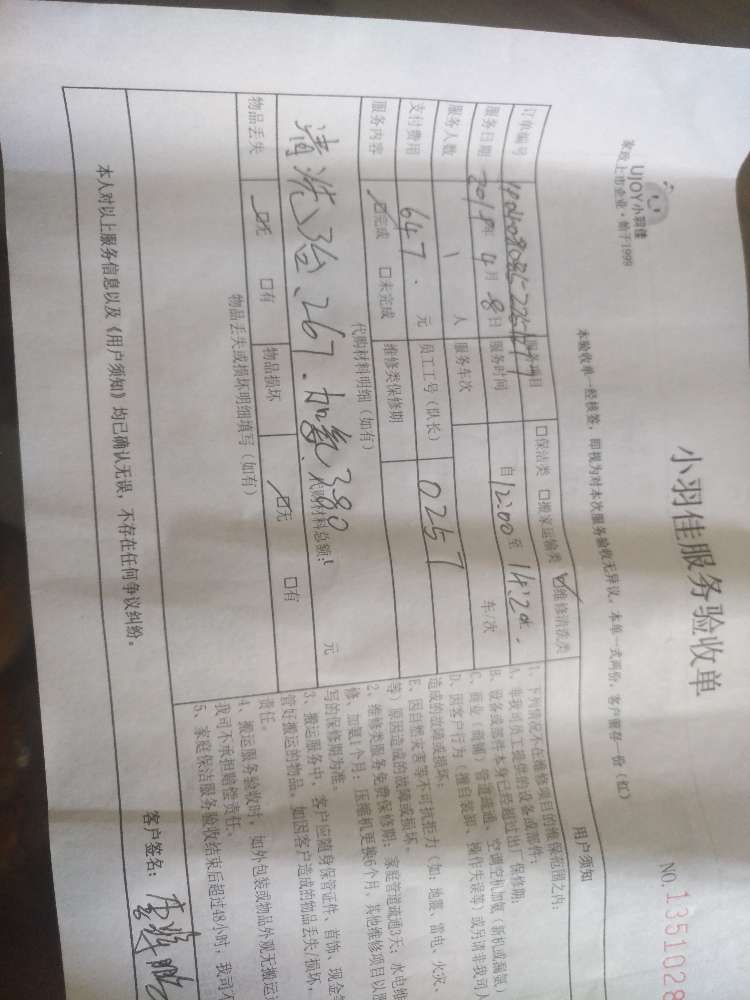 UJOY小羽佳
家政上市企业·始于1999
小羽佳服务验收单
NO.1351028
本验收单一经核签，即视为对本次服务验收无异议。本单一式两份，客户留存一份（红）
订单编号
服务项目 □保洁类 □搬家运输类 ☑维修清洗类
服务日期 2019年4月8日 服务时间 自12:00至14:20
服务人数 1 人 服务车次 车/次
支付费用 647. 元 员工工号（队长） 0257
服务内容 ☑完成 □未完成 维修类保修期
代购材料明细（如有）
清洗3台、267.加氨380
代购材料总额： 元
物品丢失 ☑无 □有 物品损坏 ☑无 □有
物品丢失或损坏明细填写（如有）
用户须知
1、下列情况不在维修项目的维保范围之内：
A、非我司员工提供的设备或部件；
B、设备或部件本身已经超过出厂保修期；
C、商业（商铺）管道疏通、空调空机加氨（新机或漏氨）
D、因客户行为（擅自装卸、操作失误等）或另请非我司人
造成的故障或损坏；
E、因自然灾害等不可抗拒力（如：地震、雷电、火灾、
等）原因造成的故障或损坏。
2、维修类服务免费保修期：家庭管道疏通3天；水电维
修、加氨1个月；压缩机更换6个月，其他维修项目以
写的保修期为准。
3、搬运服务中，客户应随身保管证件、首饰、现金
管好搬运的物品。如因客户造成的物品丢失/损坏，
责任。
4、搬运服务验收时，如外包装或物品外观无搬运
我司不承担赔偿责任。
5、家庭保洁服务验收结束后超过48小时，我司不
本人对以上服务信息以及《用户须知》均已确认无误，不存在任何争议纠纷。
客户签名：